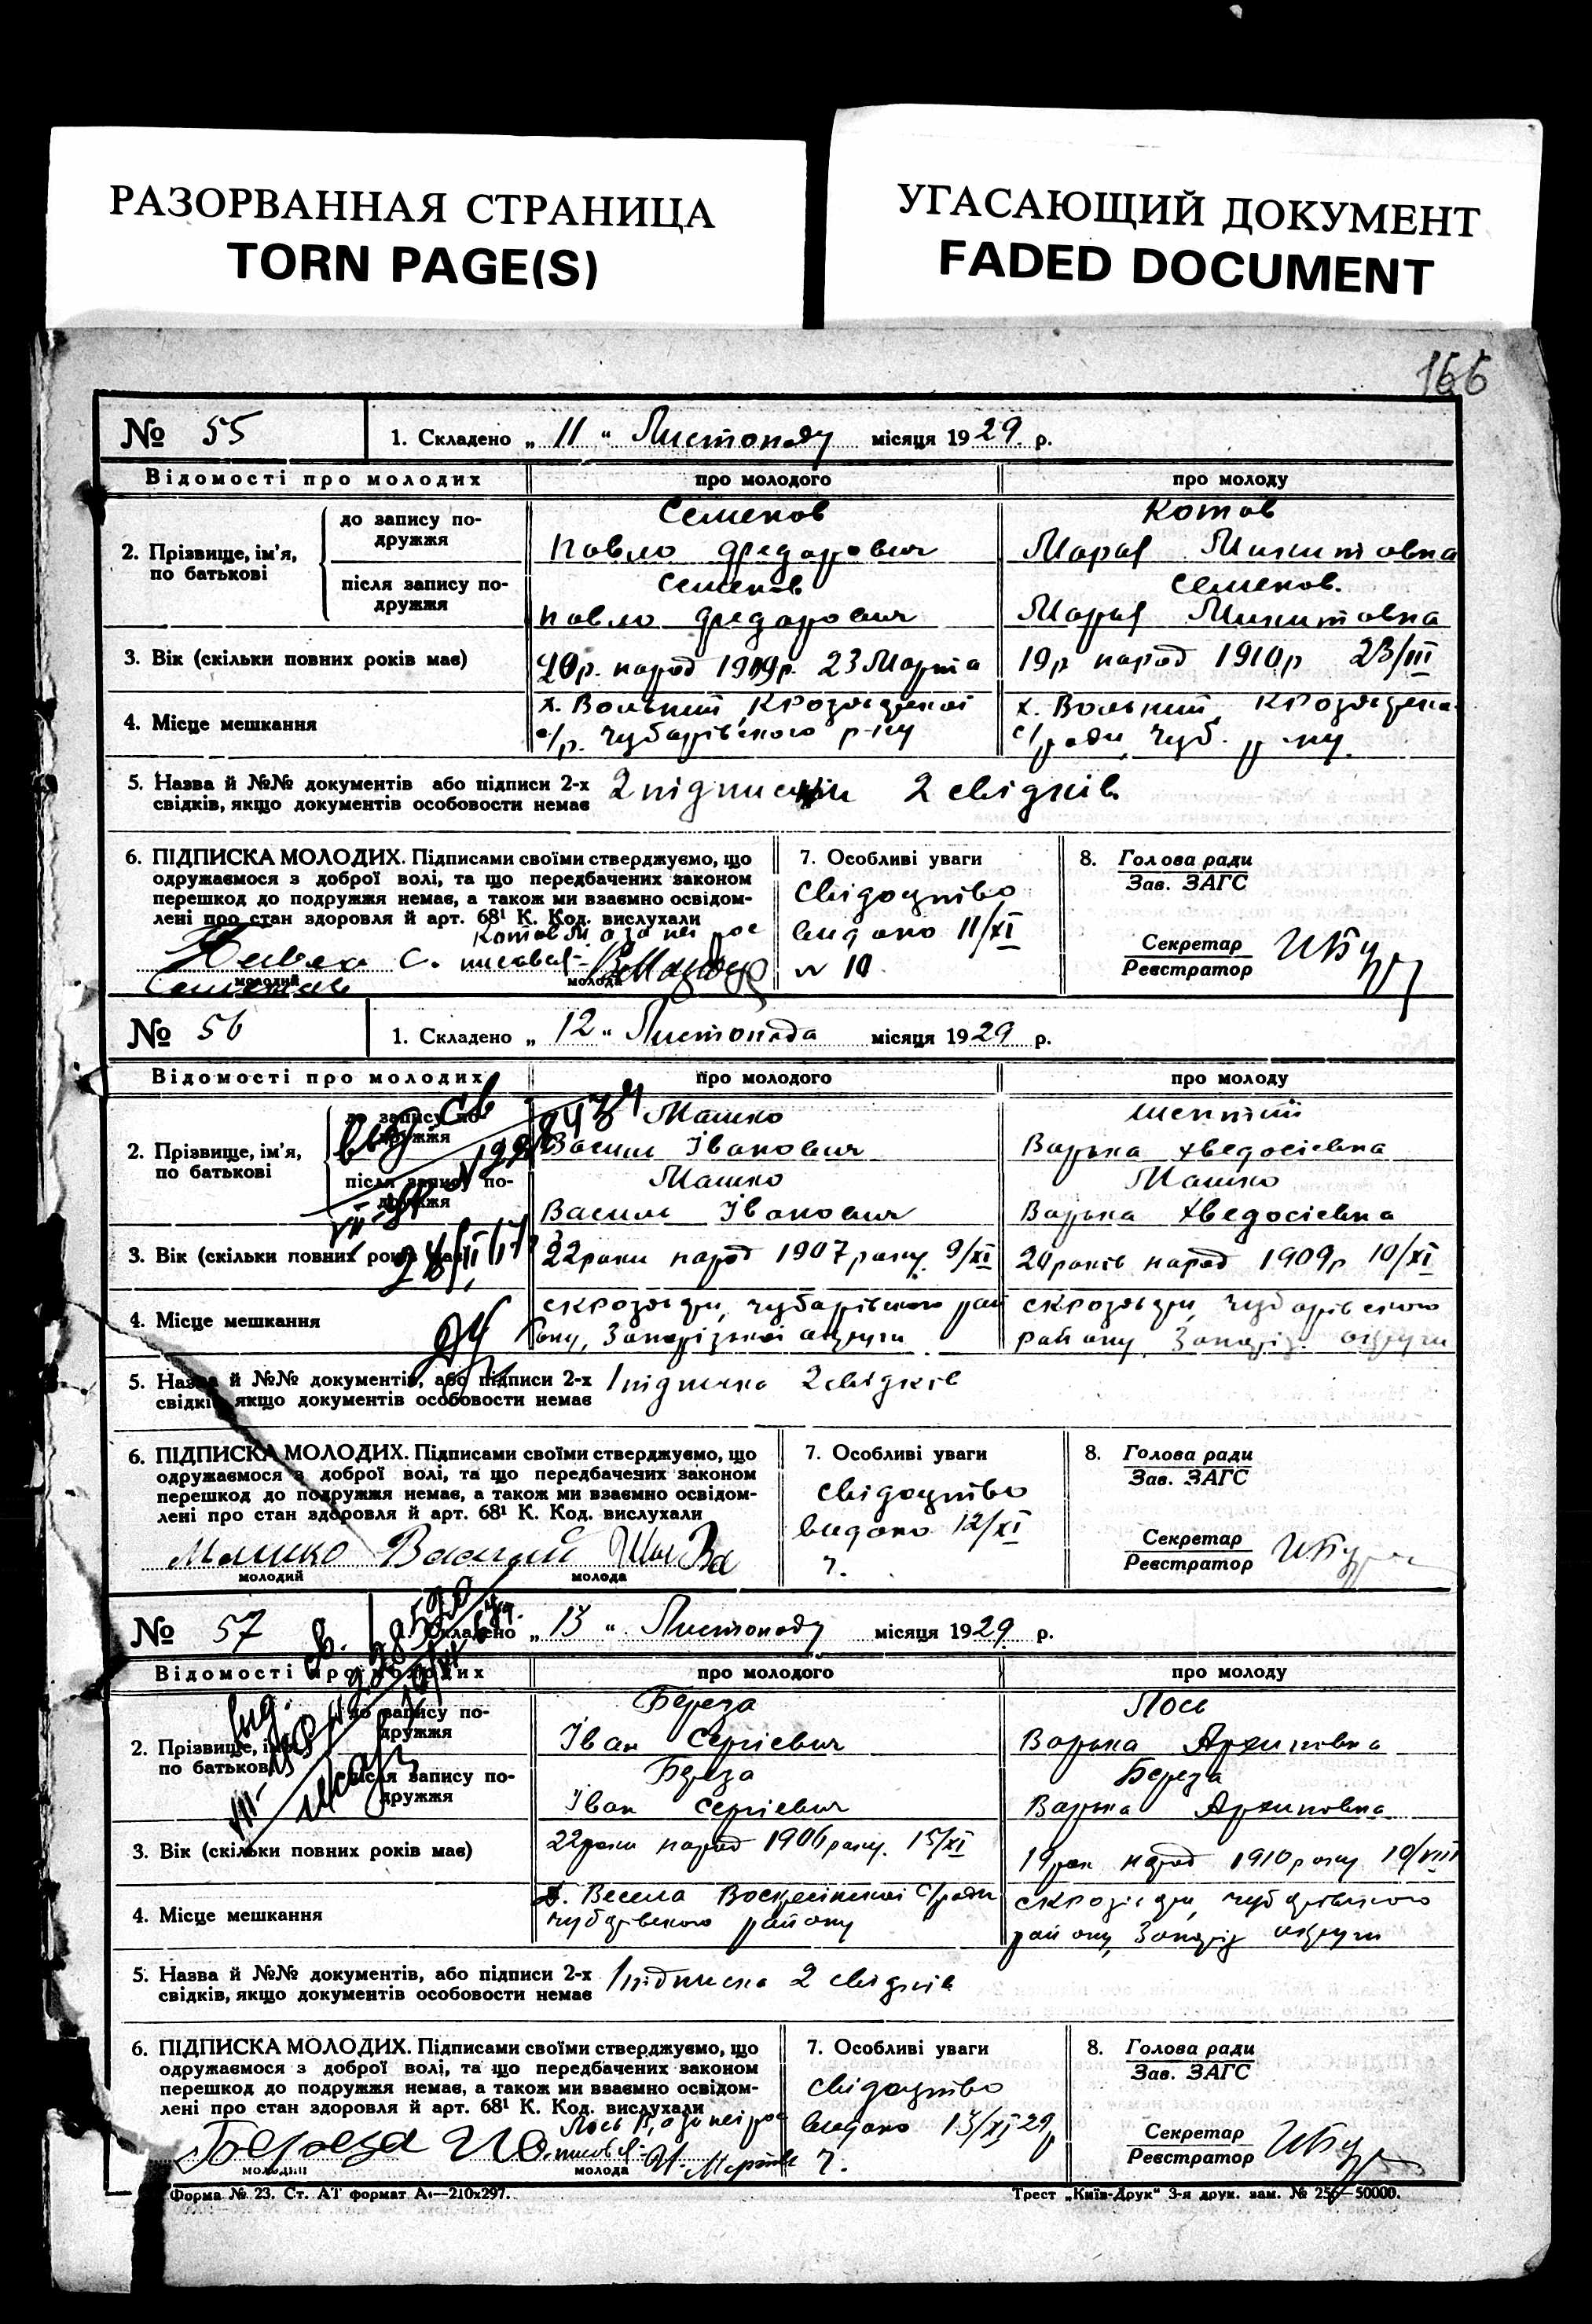 РАЗОРВАННАЯ СТРАНИЦА
TORN PAGE(S)
УГАСАЮЩИЙ ДОКУМЕНТ
FADED DOCUMENT
166
№ 55
1. Складено „ 11 “ Листопаду місяця 1929 р.
Відомості про молодих
про молодого
про молоду
2. Прізвище, ім'я, по батькові
до запису подружжя
Семенов
Павло Федорович
Котов
Марія Микитовна
після запису подружжя
Семенов
Павло Федорович
Семенов.
Марія Микитовна
3. Вік (скільки повних років має)
р. народ 23 Марта
19р народ 1910р 23/III
4. Місце мешкання
х. Вольний
с/р. Чубарівського р-ну
х. Вольний
с/ради, Чуб. р-ну.
5. Назва й №№ документів або підписи 2-х
свідків, якщо документів особовости немає
2 свідків.
6. ПІДПИСКА МОЛОДИХ. Підписами своїми стверджуємо, що
одружаємося з доброї волі, та що передбачених законом
перешкод до подружжя немає, а також ми взаємно освідом-
лені про стан здоровля й арт. 68¹ К. Код. вислухали
молодий
молода
7. Особливі уваги
Свідоцтво
видано 11/XI
№ 10
8. Голова ради
Зав. ЗАГС
Секретар
Реєстратор
№ 56
1. Складено „ 12 “ Листопада місяця 1929 р.
Відомості про молодих
про молодого
про молоду
2. Прізвище, ім'я, по батькові
до запису подружжя
Машко
Василь Іванович
Шептій
Варька Хведосієвна
після запису подружжя
Машко
Василь Іванович
Машко
Варька Хведосієвна
3. Вік (скільки повних років має)
22 роки народ 1907 року. 9/XI
20 років народ 1909р 10/XI
4. Місце мешкання
Чубарівського рай
ону, Запорізької округи
Чубарівського
району, Запоріз. округи
5. Назва й №№ документів, або підписи 2-х
свідків, якщо документів особовости немає
1 підписка 2 свідків
6. ПІДПИСКА МОЛОДИХ. Підписами своїми стверджуємо, що
одружаємося з доброї волі, та що передбачених законом
перешкод до подружжя немає, а також ми взаємно освідом-
лені про стан здоровля й арт. 68¹ К. Код. вислухали
Машко Василий
молодий
молода
7. Особливі уваги
Свідоцтво
видано 12/XI
8. Голова ради
Зав. ЗАГС
Секретар
Реєстратор
№ 57
1. Складено „ 13 “ Листопаду місяця 1929 р.
Відомості про молодих
про молодого
про молоду
2. Прізвище, ім'я, по батькові
до запису подружжя
Береза
Іван Сергієвич
Лось
Варька Архиповна
після запису подружжя
Береза
Іван Сергієвич
Береза
Варька Архиповна
3. Вік (скільки повних років має)
22 роки народ 1906 року. 15/XI
19 рок народ 1910 року 10/VIII
4. Місце мешкання
Весела Воскресінської с/ради
Чубарівського району
Чубарівського
району, Запоріз округи
5. Назва й №№ документів, або підписи 2-х
свідків, якщо документів особовости немає
1 підписка 2 свідків
6. ПІДПИСКА МОЛОДИХ. Підписами своїми стверджуємо, що
одружаємося з доброї волі, та що передбачених законом
перешкод до подружжя немає, а також ми взаємно освідом-
лені про стан здоровля й арт. 68¹ К. Код. вислухали
молодий
молода
7. Особливі уваги
Свідоцтво
видано 13/XI 29р
8. Голова ради
Зав. ЗАГС
Секретар
Реєстратор
Форма № 23. Ст. АТ формат А₄—210х297.
Трест „Київ-Друк“ 3-я друк. зам. № 256—50000.